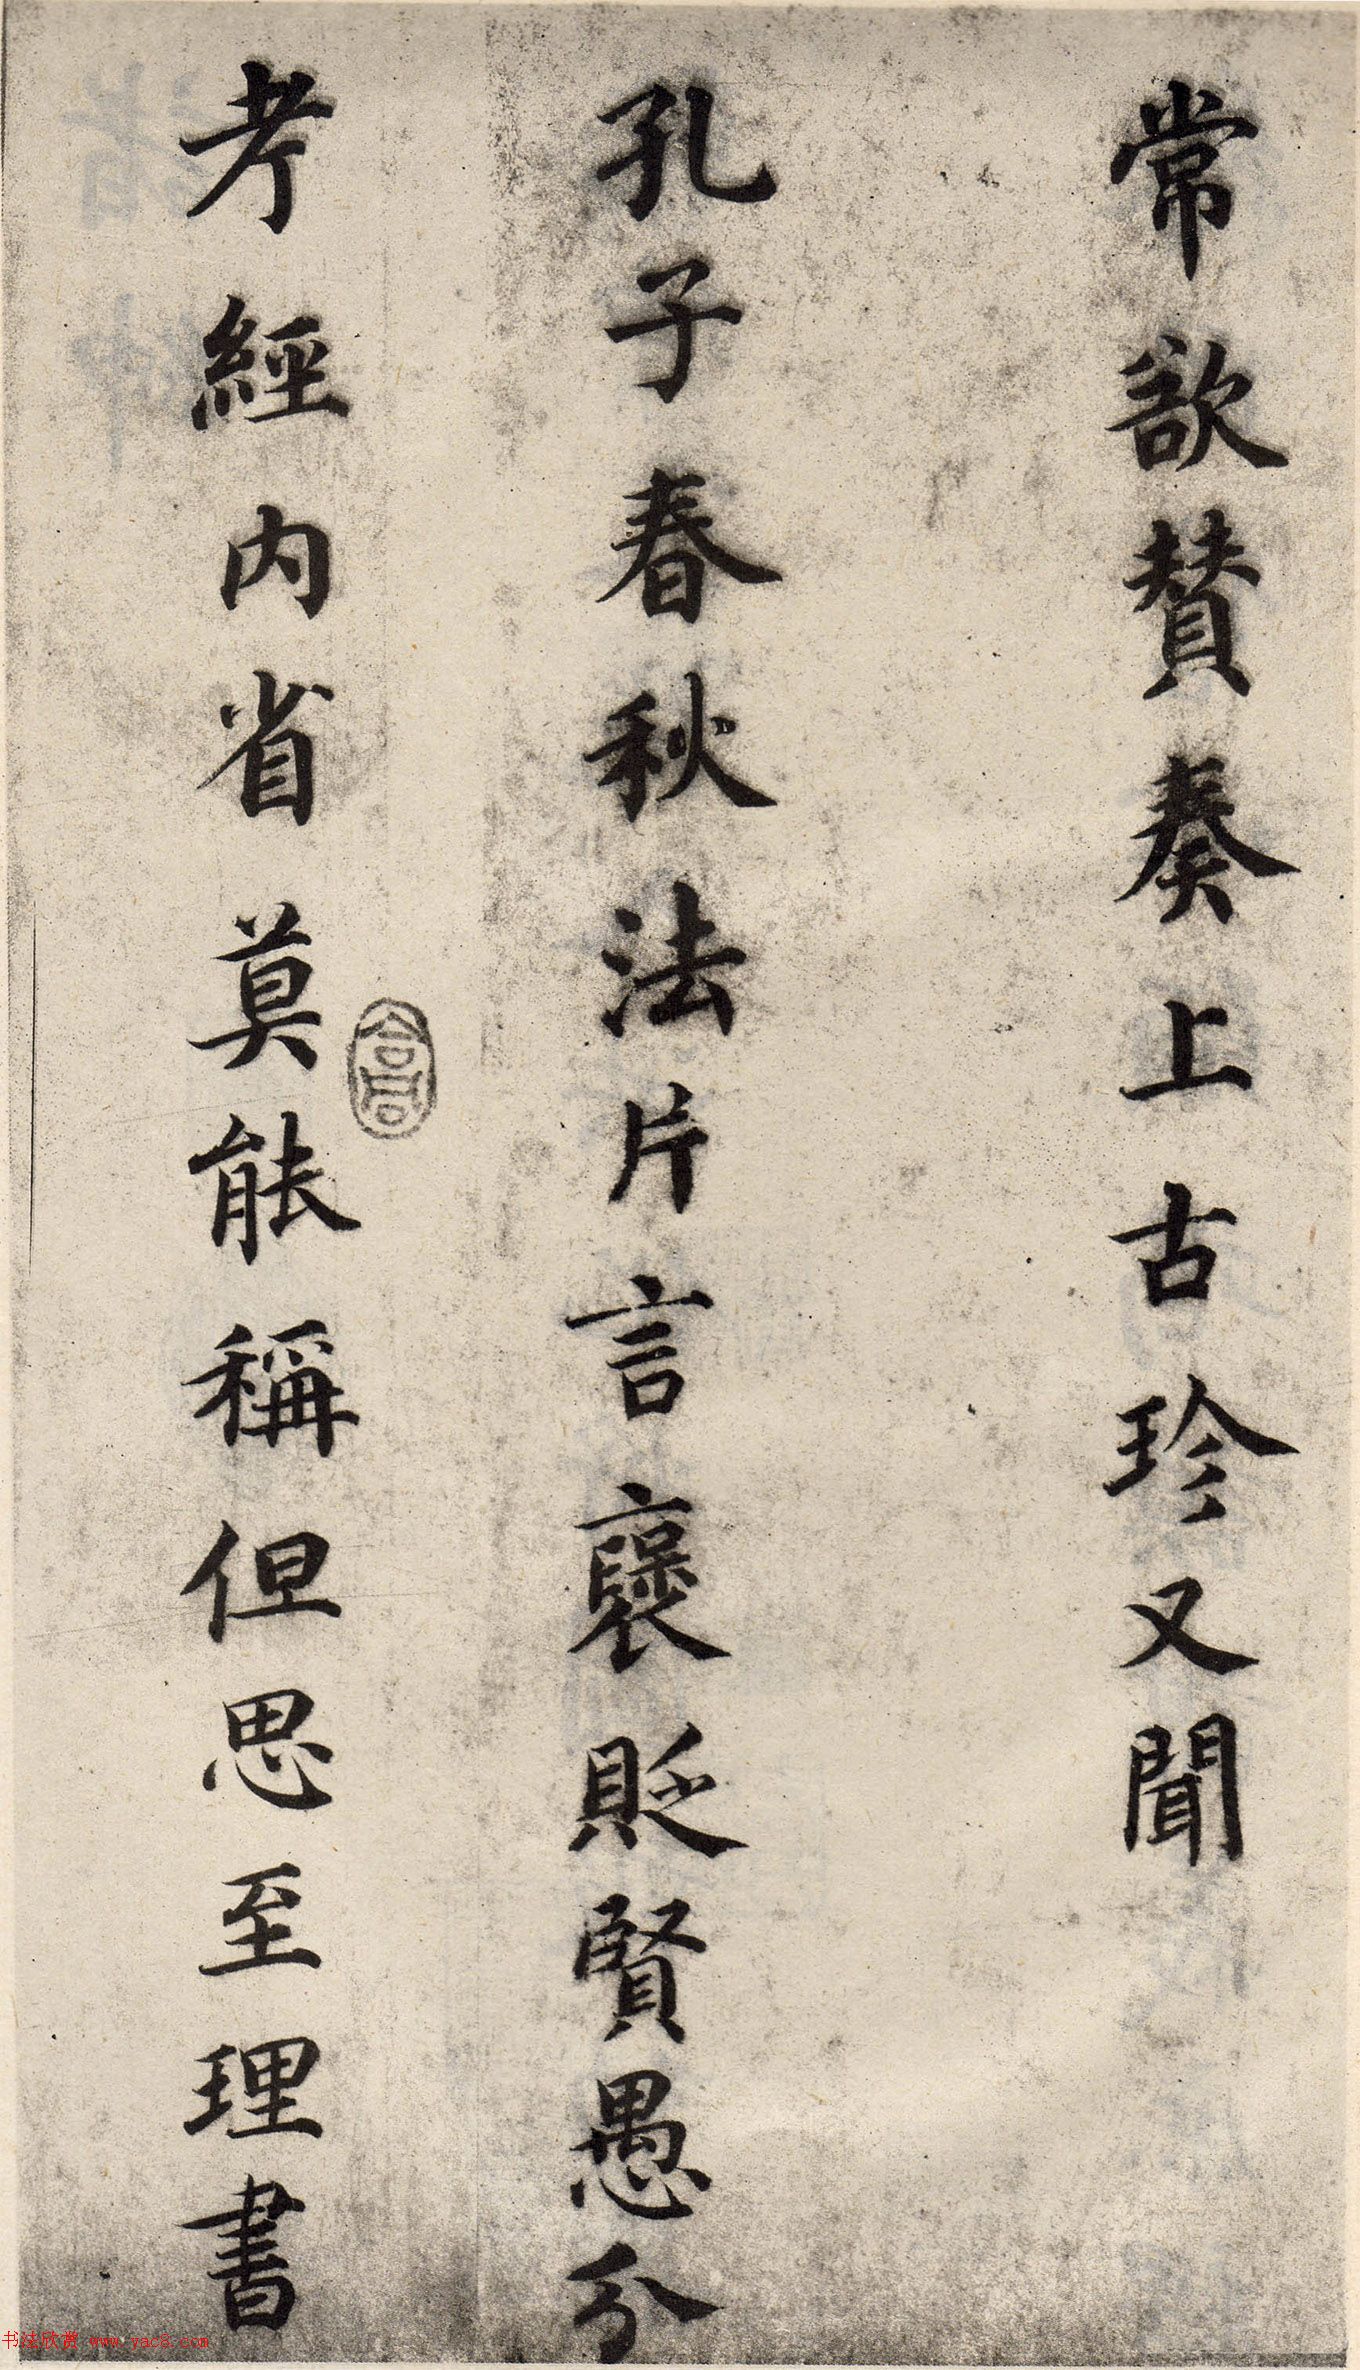 常欲賛奏上古珍又聞
孔子春秋法片言襃貶賢愚分
考經内省莫能稱但思至理書
书法欣赏 www.yac8.com